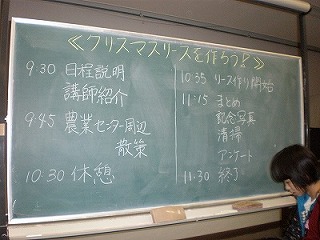 ≪クリスマスリースを作ろう!≫
9:30 日程説明
講師紹介
9:45 農業センター周辺
散策
10:30 休憩
10:35 リース作り開始
11:15 まとめ
記念写真
清掃
アンケート
11:30 終了